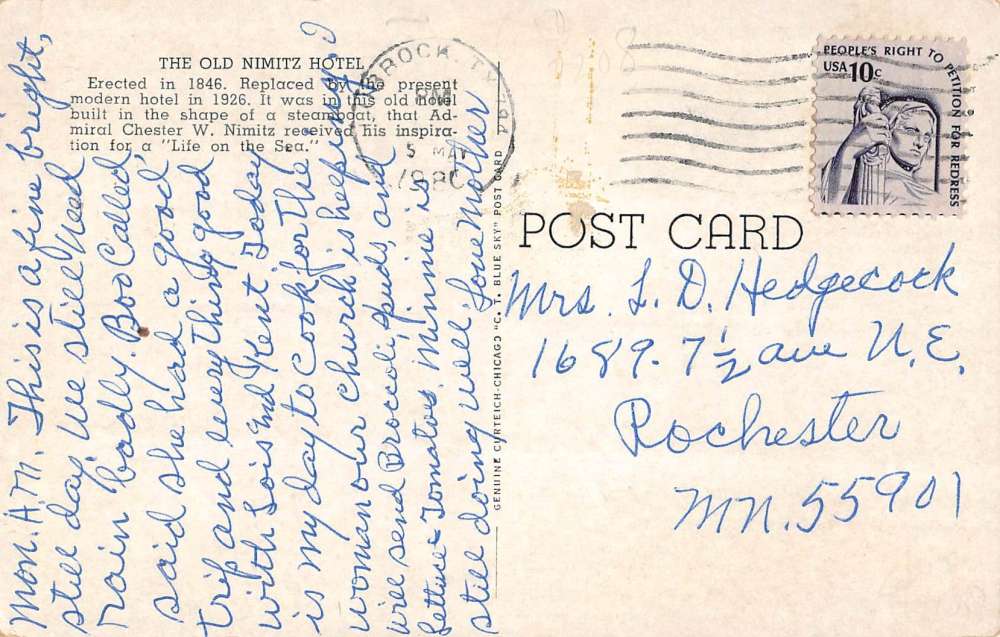 THE OLD NIMITZ HOTEL
Erected in 1846. Replaced by the present
modern hotel in 1926. It was in this old hotel
built in the shape of a steamboat, that Ad-
miral Chester W. Nimitz received his inspira-
tion for a "Life on the Sea."
Mon. A.M. This is a fine bright,
still day. We still need
rain badly. Boo called,
said she had a good
trip and everything good
with Lois and Kent. Today
is my day to cook for the
woman our church is helping. I
will send Broccoli, spuds, and
Lettuce & Tomatoes. Minnie is
still doing well. Love Mother
GENUINE CURTEICH-CHICAGO "C. T. BLUE SKY" POST CARD
BROCK, TX
PM
5 MAY
1980
PEOPLE'S RIGHT TO PETITION FOR REDRESS
USA 10c
POST CARD
Mrs. L. D. Hedgecock
1689-7½ ave N.E.
Rochester
MN. 55901